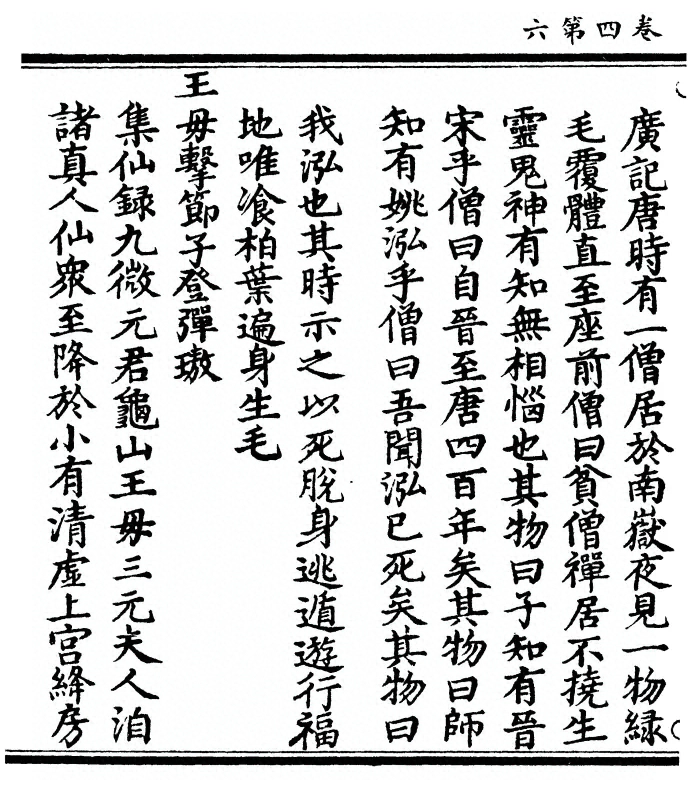 卷四第六
廣記唐時有一僧居於南嶽夜見一物緑
毛覆體直至座前僧曰貧僧禪居不撓生
靈鬼神有知無相惱也其物曰子知有晉
宋乎僧曰自晉至唐四百年矣其物曰師
知有姚泓乎僧曰吾聞泓已死矣其物曰
我泓也其時示之以死脫身逃遁遊行福
地唯飡柏葉遍身生毛
王母擊節子登彈璈
集仙録九微元君龜山王母三元夫人洎
諸真人仙衆至降於小有清虛上宫絳房